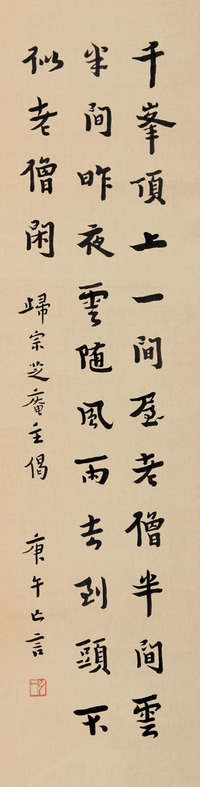 千峯頂上一間屋老僧半間雲
半間昨夜雲随風雨去到頭不
似老僧閑
歸宗芝庵主偈 庚午亡言